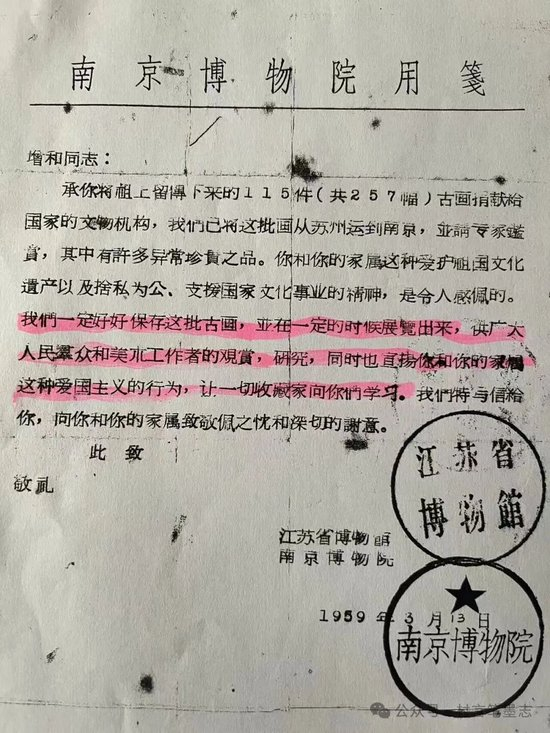 南京博物院用笺
增和同志：
承你将祖上留傳下来的115件(共257幅)古画捐献给
国家的文物机构，我們已将这批画从苏州运到南京，並請专家鑑
賞，其中有許多异常珍貴之品。你和你的家属这种爱护祖国文化
遺产以及捨私为公、支援国家文化事业的精神，是令人感佩的。
我們一定好好保存这批古画，並在一定的时候展覽出来，供广大
人民羣众和美朮工作者的观賞，研究，同时也直揚你和你的家属
这种爱国主义的行为，让一切收藏家向你們学习。我們特与信給
你，向你和你的家属致敬佩之忱和深切的謝意。
此致
敬礼
江苏省博物館
南京博物院
1959年3月13日
江苏省
博物館
南京博物院
公众号
笔墨志